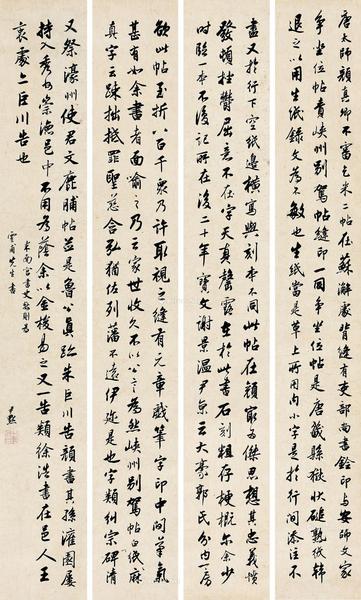 唐太師顏真卿不審乞米二帖在蘇澥處背縫有吏部尚書銓印與安師文家
爭坐位帖責峽州別駕帖縫印一同爭坐位帖是唐畿縣獄狀磓熟紙韓
退之以用生紙錄文為不敏也生紙當是草上所用內小字是於行間添注不
盡又於行下空紙邊橫寫與刻本不同此帖在顏最為傑思想其忠義憤
發頓挫鬱屈意不在字天真罄露在於此書石刻粗存梗概尔余少
時臨一本不復記所在後二十年寶文謝景溫尹京云大豪郭氏分內一房
欲此帖至折八百千眾乃許取視之縫有元章戲筆字印中間筆氣
甚有如余書者面喻之乃云家世收久不以公言為然峽州別駕帖白紙麻
真字云疎拙抵罪聖慈含弘猶佐列藩不遠伊邇是也字類糾宗碑清
又祭濠州使君文鹿脯帖並是魯公真跡朱巨川告顏書其孫灌園屢
持入秀州崇德邑中不用為蔭余以金梭易之又一告類徐浩書在邑人王
衮處亦巨川告也
米南宮書史數則為
先生書
尹默